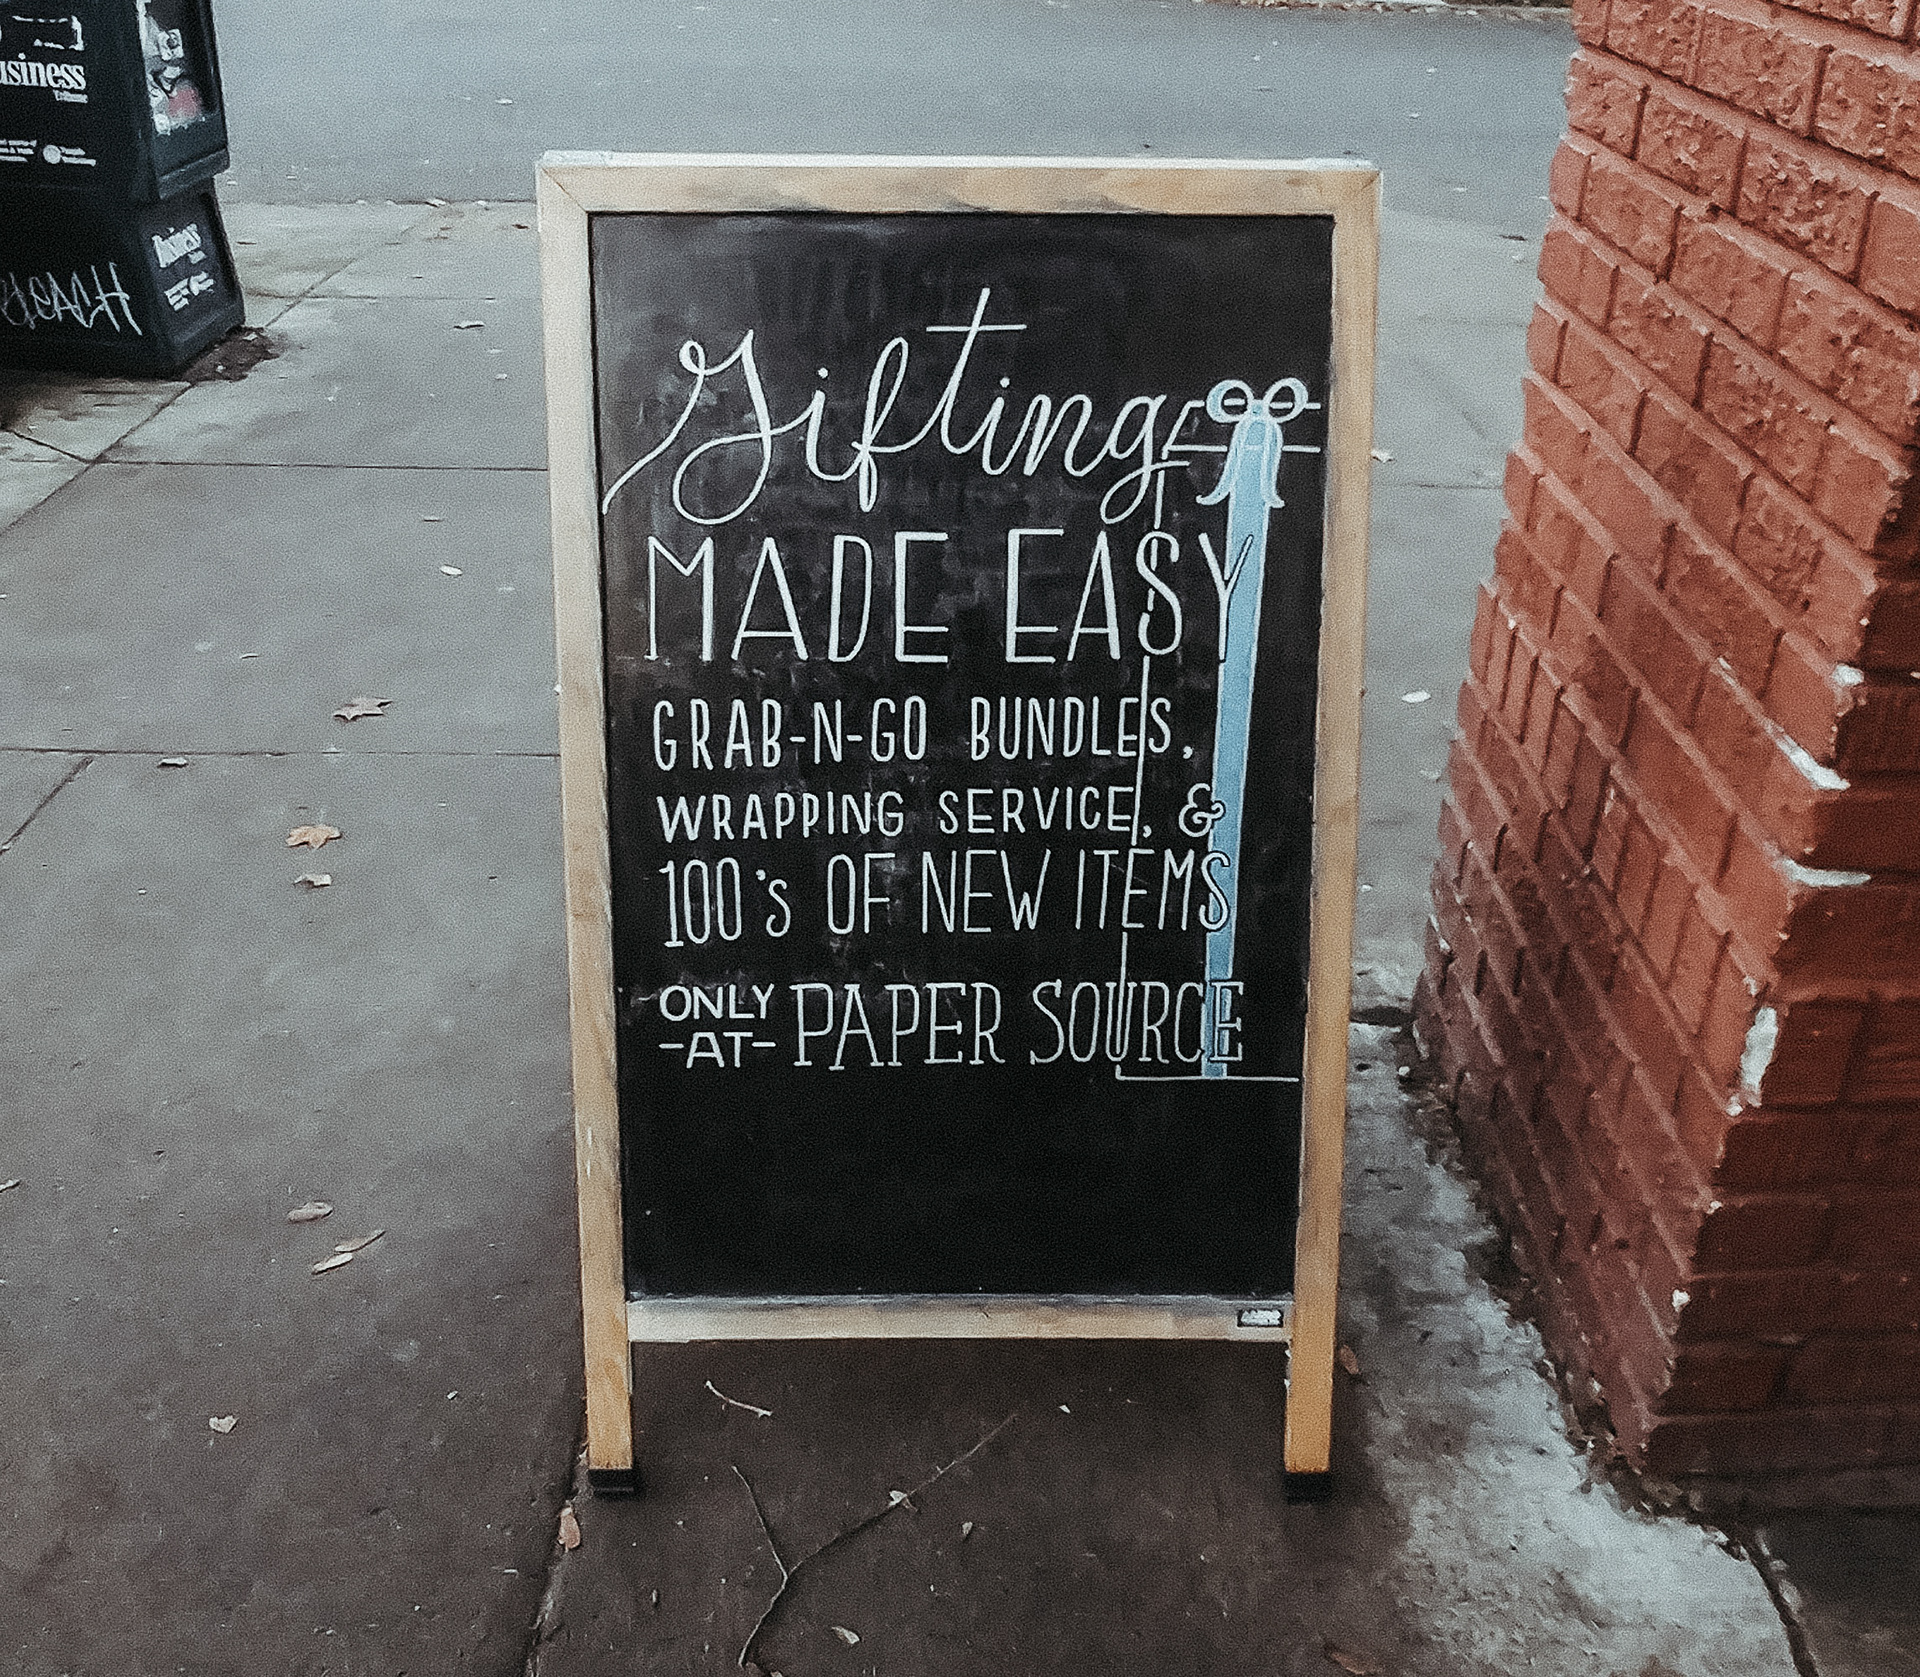 Gifting
MADE EASY
GRAB-N-GO BUNDLES,
WRAPPING SERVICE, &
100's OF NEW ITEMS
ONLY
-AT- PAPER SOURCE
usiness
Business